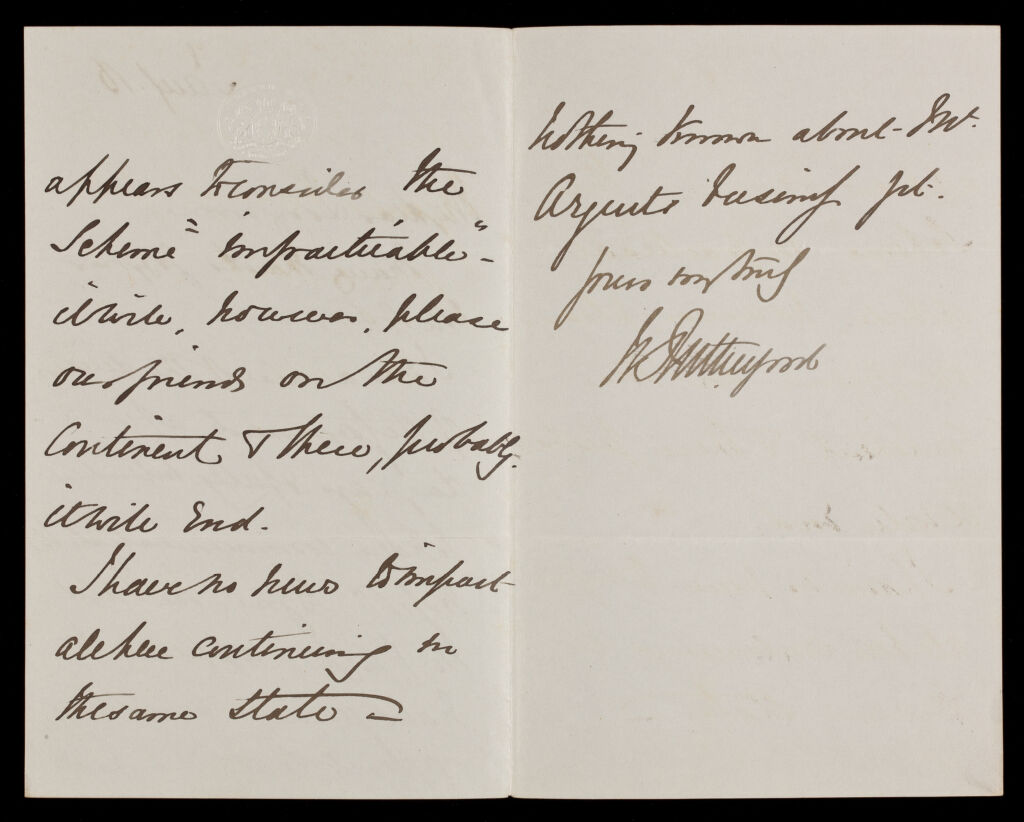 appears to consider the
Scheme "impracticable" -
it will, however, please
our friends on the
Continent & there, probably,
it will End.
I have no news to impart
all here continuing in
the same state -
Nothing known about Mr.
Argent's business yet.
yours very truly
W Rutherford